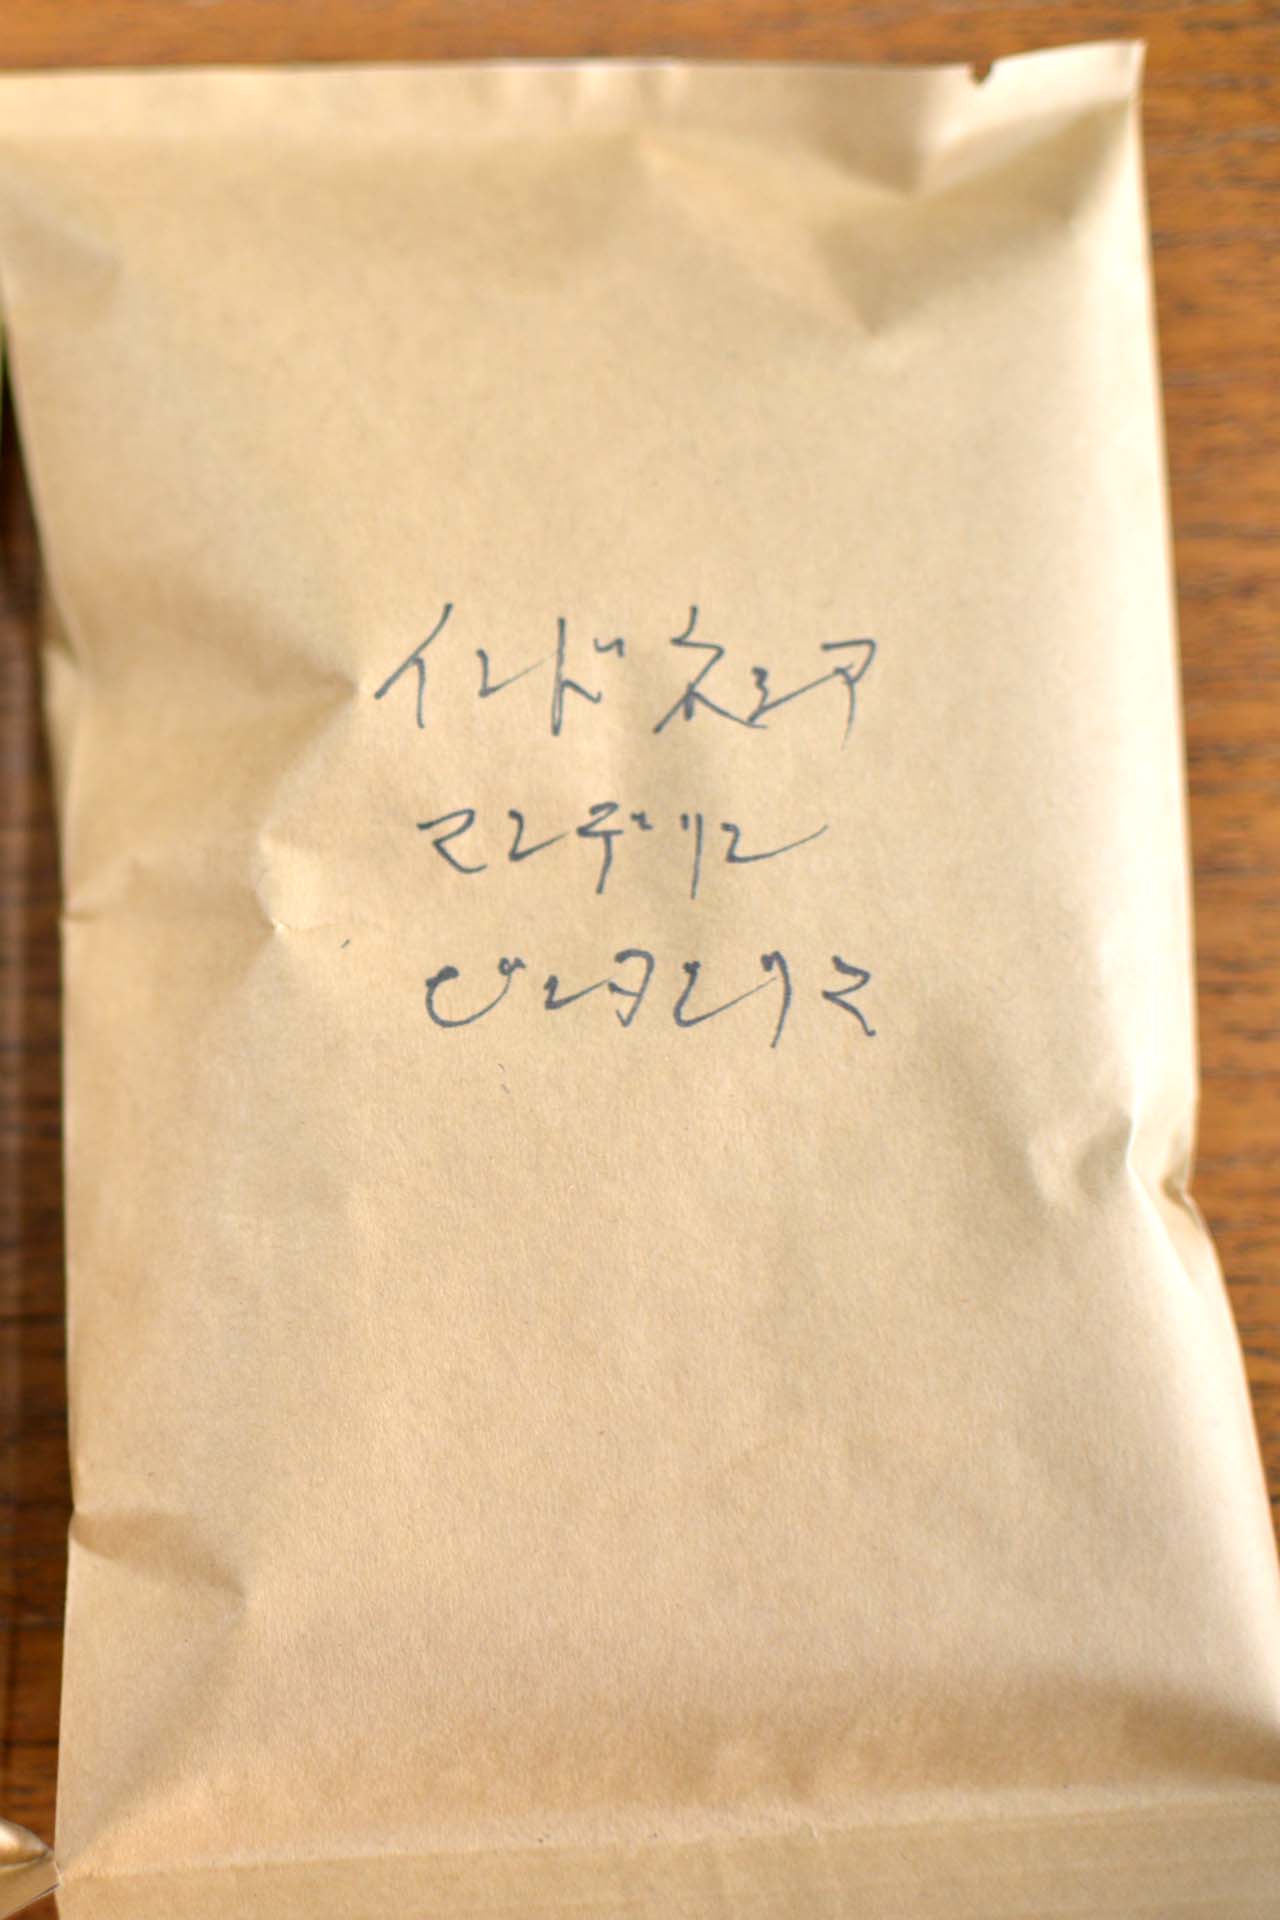 インドネシア
マンデリン
ビンタンリマ